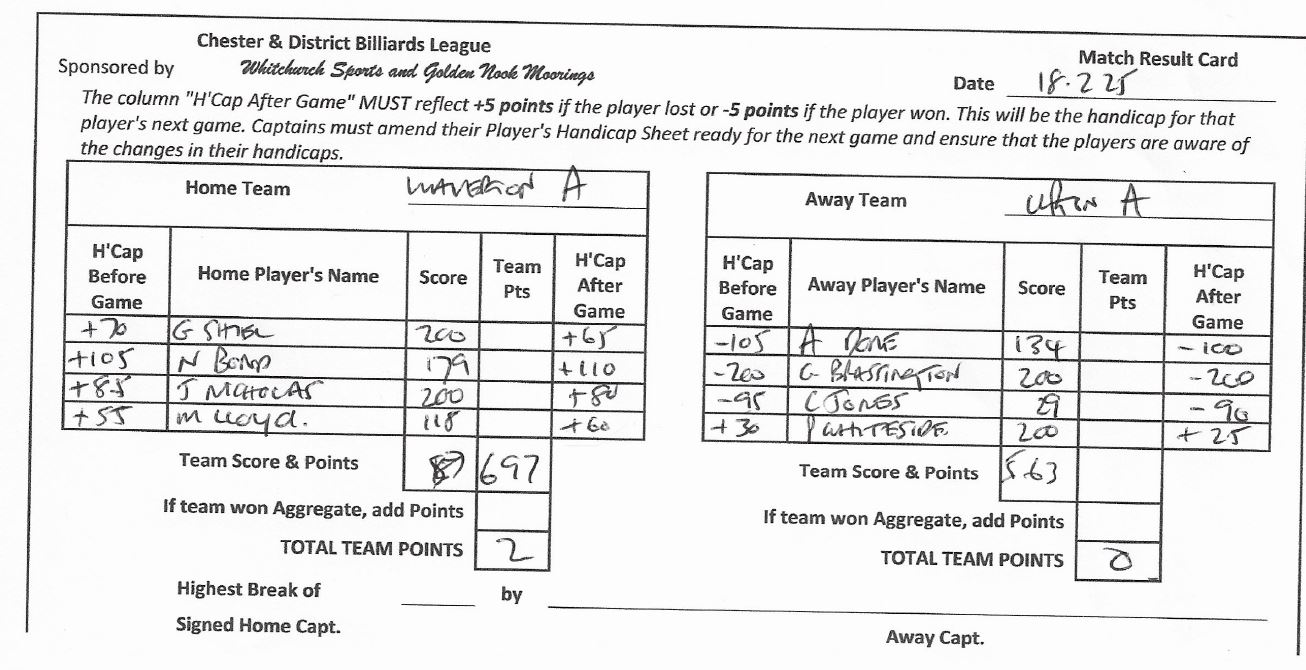 Chester & District Billiards League
Match Result Card
Sponsored by Whitchurch Sports and Golden Nook Moorings
Date 18.2 25
The column "H'Cap After Game" MUST reflect +5 points if the player lost or -5 points if the player won. This will be the handicap for that
player's next game. Captains must amend their Player's Handicap Sheet ready for the next game and ensure that the players are aware of
the changes in their handicaps.
Home Team WAVERTON A
H'Cap Before Game Home Player's Name Score Team Pts H'Cap After Game
+70 G SHIEL 200 +65
+105 N BOND 179 +110
+85 J NICHOLAS 200 +80
+55 M LLOYD. 118 +60
Team Score & Points 697
If team won Aggregate, add Points
TOTAL TEAM POINTS 2
Away Team UPTON A
H'Cap Before Game Away Player's Name Score Team Pts H'Cap After Game
-105 A DONE 134 -100
-200 G BLASSINGTON 200 -200
-95 C JONES 29 -90
+30 P WHITESIDE 200 +25
Team Score & Points 563
If team won Aggregate, add Points
TOTAL TEAM POINTS 0
Highest Break of by
Signed Home Capt. Away Capt.